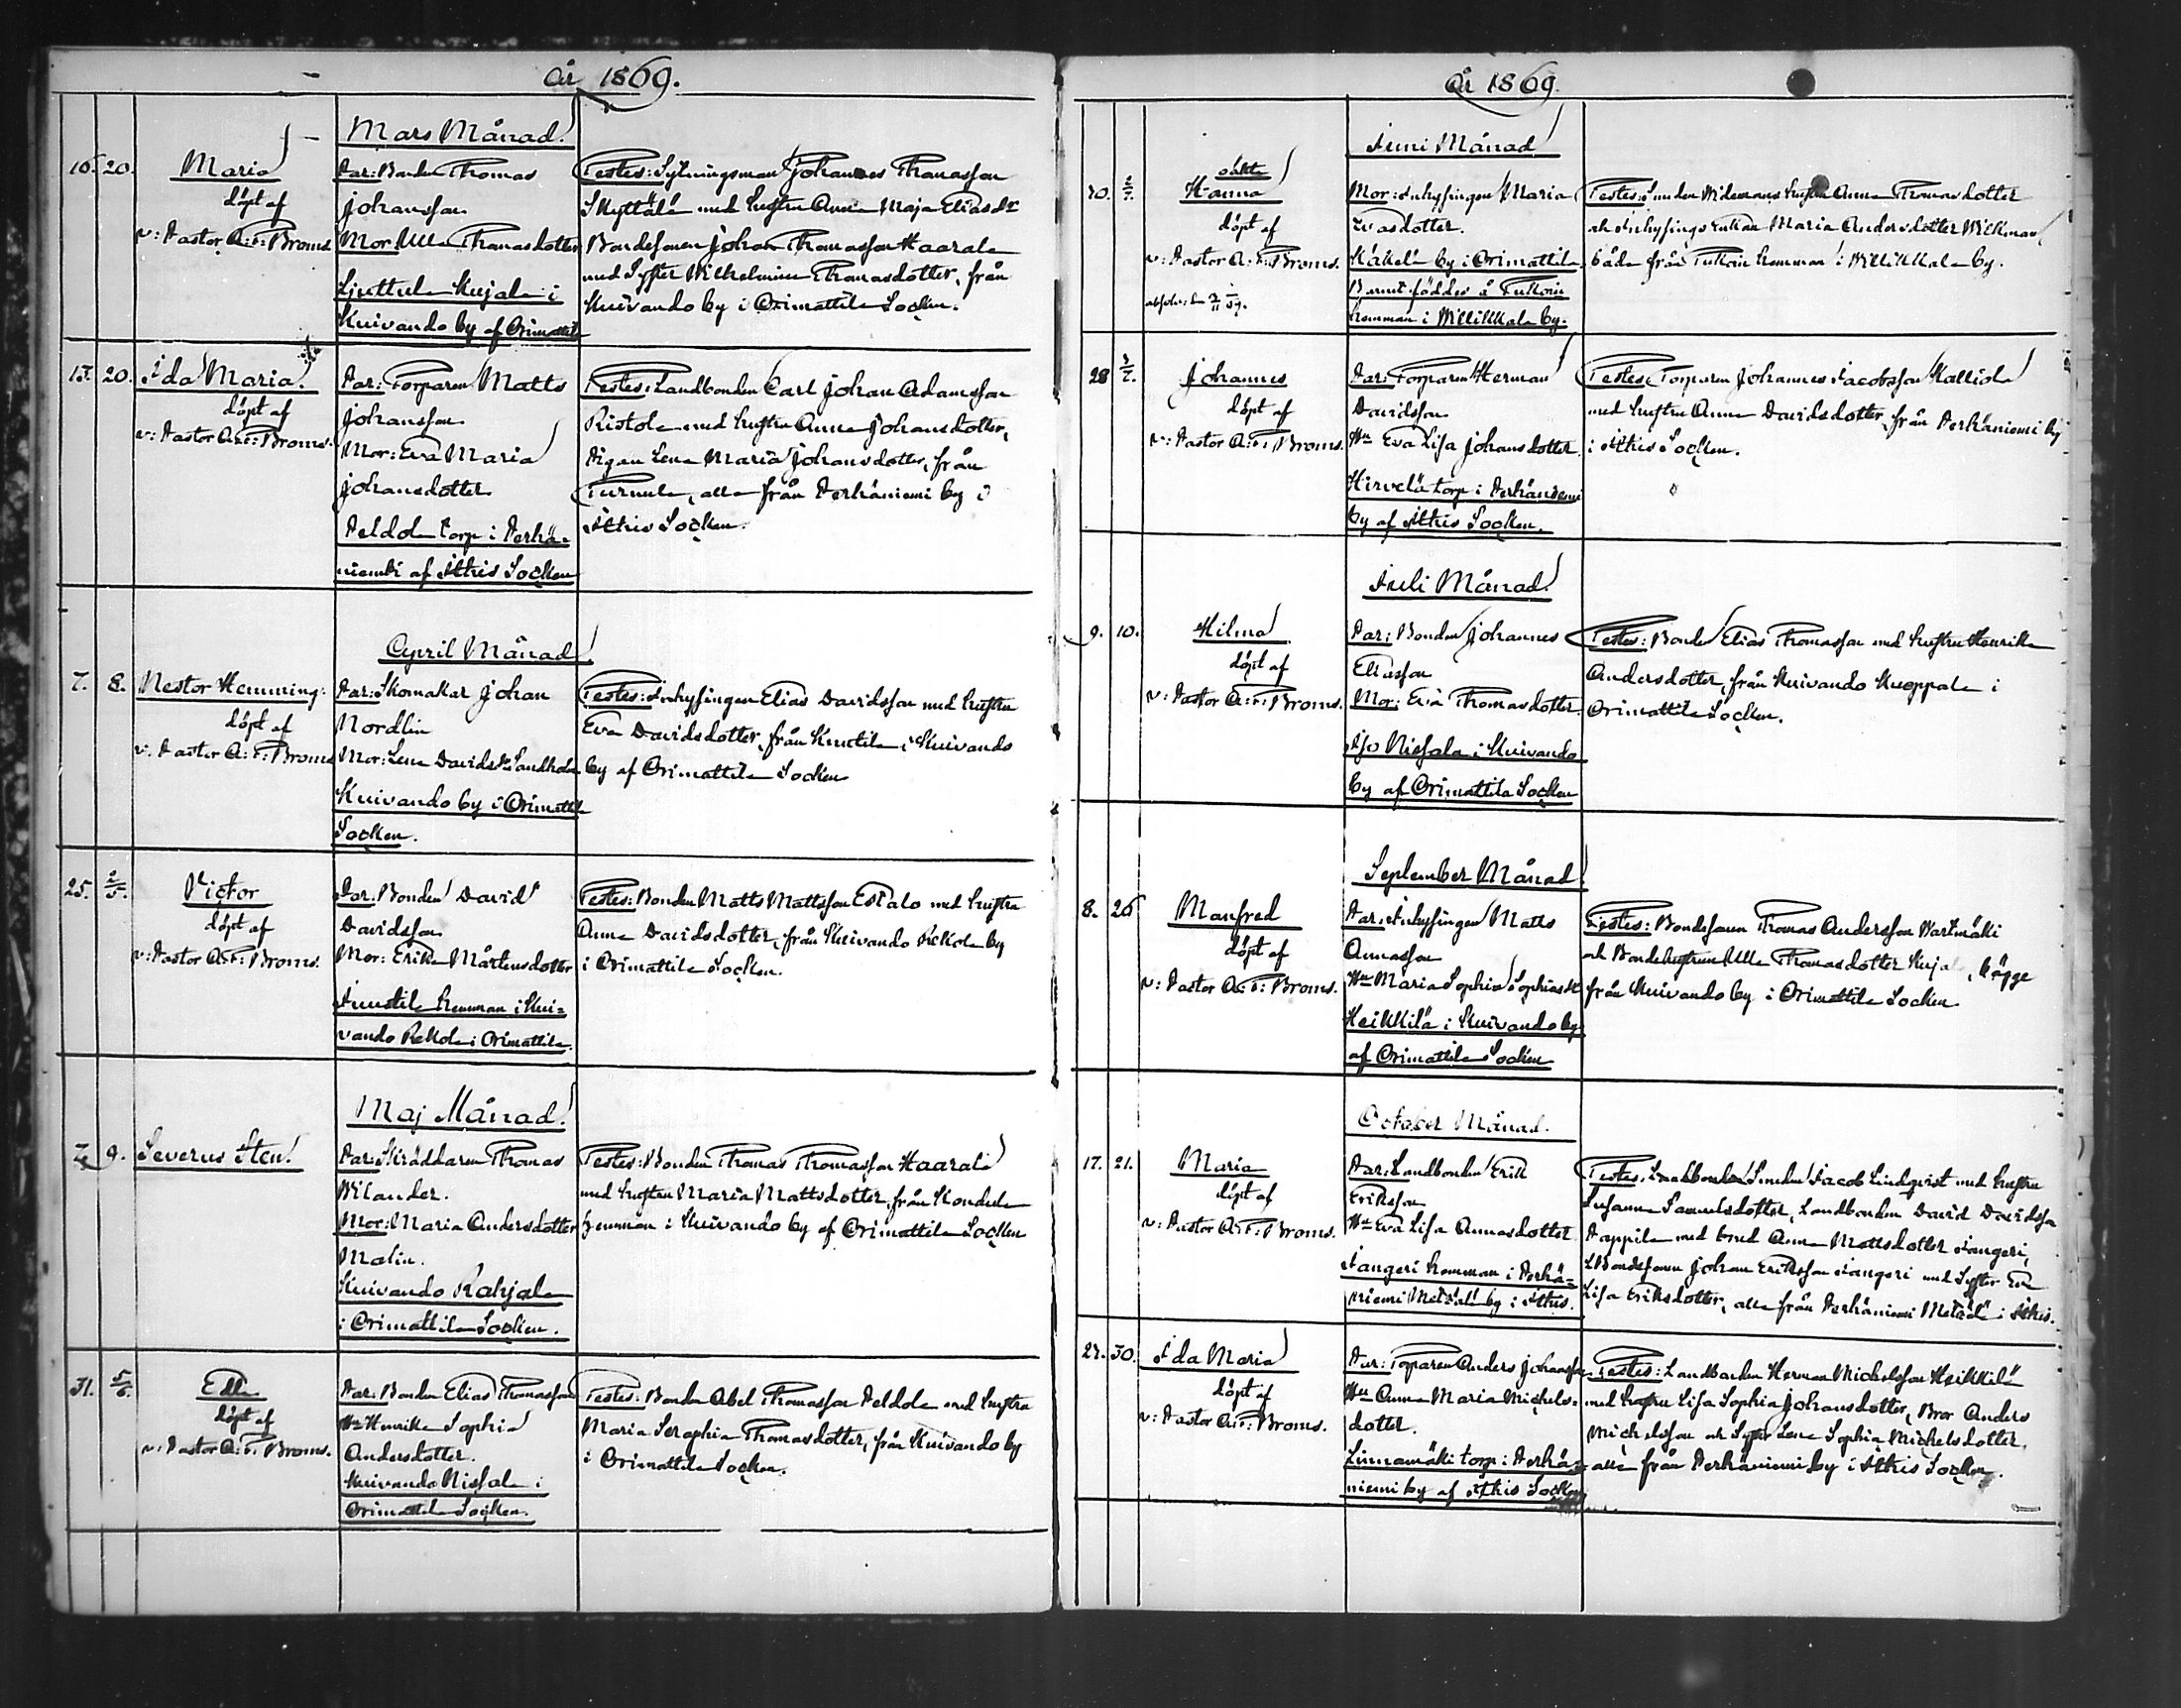 År 1869.
Mars Månad.
16. 20. Maria
döpt af
v: Pastor A: F: Broms.
Far: Bonden Thomas
Johansson
Mor: Ulla Thomasdotter
Kujala i
Kuivando by af Orimattila
Testes: Sytningsman Johannes Thomasson
Skyttälä med hustru Anna Maja Eliasdr
Bondesonen Johan Thomasson Haarala
med Syster Wilhelmina Thomasdotter, från
Kuivando by i Orimattila Socken.
15. 20. Ida Maria.
döpt af
v: Pastor A: F: Broms.
Far: Torparen Matts
Johansson
Mor: Eva Maria
Johansdotter
Peldola torp i Perhä-
niemi af Ithis Socken
Testes: Landbonden Carl Johan Adamsson
Ristola med hustru Anna Johansdotter,
Pigan Lena Maria Johansdotter, från
alla från Perhäniemi by i
Ithis Socken.
April Månad
7. 8. Nestor Hemming.
döpt af
v: Pastor A: F: Broms
Far: Skomakar Johan
Nordlin
Mor: Lena Davidsdr Sandholm
Kuivando by i Orimattila
Socken.
Testes: Inhysingen Elias Davidsson med hustru
Eva Davidsdotter, från Knutila i Kuivando
by af Orimattila Socken
25. 2/5. Victor
döpt af
v: Pastor A: F: Broms.
Far: Bonden David
Davidsson
Mor: Erika Mårtensdotter
hemman i Kui-
vando Rekola i Orimattila.
Testes: Bonden Matts Mattsson Eskalo med hustru
Anna Davidsdotter, från Kuivando Rekola by
i Orimattila Socken.
Maj Månad.
7. 9. Severus Sten.
Far: Skräddaren Thomas
Wilander.
Mor: Maria Andersdotter
Malin.
Kuivando Rahjala
i Orimattila Socken.
Testes: Bonden Thomas Thomasson Haarala
med hustru Maria Mattsdotter, från
hemman i Kuivando by af Orimattila Socken
31. 5/6. Edla
döpt af
v: Pastor A: F: Broms.
Far: Bonden Elias Thomasson
Hu Henrika Sophia
Andersdotter.
Kuivando Nissala i
Orimattila Socken.
Testes: Bonden Abel Thomasson Peldola med hustru
Maria Seraphia Thomasdotter, från Kuivando by
i Orimattila Socken.
År 1869.
Juni Månad
oäkta
Hanna
döpt af
v: Pastor A: F: Broms.
Mor: Inhysingen Maria
Evasdotter.
Käkelä by i Orimattila.
Barnet föddes å
hemman i Willikkala by.
Testes: Smeden Widemans hustru Anna Thomasdotter
och Inhysings Enkan Maria Andersdotter
båda från hemman i Willikkala by.
28 Johannes
döpt af
v: Pastor A: F: Broms.
Far: Torparen Herman
Davidsson
Hu Eva Lisa Johansdotter
Hirvelä torp i Perhäniemi
by af Ithis Socken.
Testes: Torparen Johannes Jacobsson Kalliola
med hustru Anna Davidsdotter, från Perhäniemi by
i Ithis Socken.
Juli Månad.
9. 10. Hilma
döpt af
v: Pastor A: F: Broms.
Far: Bonden Johannes
Eliasson
Mor: Eva Thomasdotter
Iso Nissala i Kuivando
by af Orimattila Socken
Testes: Bonden Elias Thomasson med hustru Henrika
Andersdotter, från Kuivando Kuoppala i
Orimattila Socken.
September Månad
8. 26 Manfred
döpt af
v: Pastor A: F: Broms.
Far: Inhysingen Matts
Annasson
Hu Maria Sophia Sophiasdr
Heikkilä i Kuivando by
af Orimattila Socken
Testes: Bondesonen Thomas Andersson Wartmäki
och Bondehustrun Ulla Thomasdotter Kuja , bägge
från Kuivando by i Orimattila Socken
October Månad.
17. 21. Maria
döpt af
v: Pastor A: F: Broms.
Far: Landbonden Erik
Eriksson
Hu Eva Lisa Annasdotter
Jangeri hemman i Perhä-
niemi Metsälä by i Ithis.
Testes: Smeden Jacob Lindqvist med hustru
Susanna Samuelsdotter, Landbonden David Davidsson
Pappila med hustru Anna Mattsdotter Jangeri,
Bondesonen Johan Eriksson Jangeri med Syster Eva
Lisa Eriksdotter, alla från Perhäniemi Metsälä i Ithis.
27. 30. Ida Maria
döpt af
v: Pastor A: F: Broms.
Far: Torparen Anders Johansson
Hu Anna Maria Michels-
dotter.
Linnamäki torp i Perhä-
niemi by af Ithis Socken
Testes: Landbonden Herman Michelsson Heikkilä
med hustru Lisa Sophia Johansdotter, Bror Anders
Michelsson och Syster Lena Sophia Michelsdotter,
alla från Perhäniemi by i Ithis Socken.